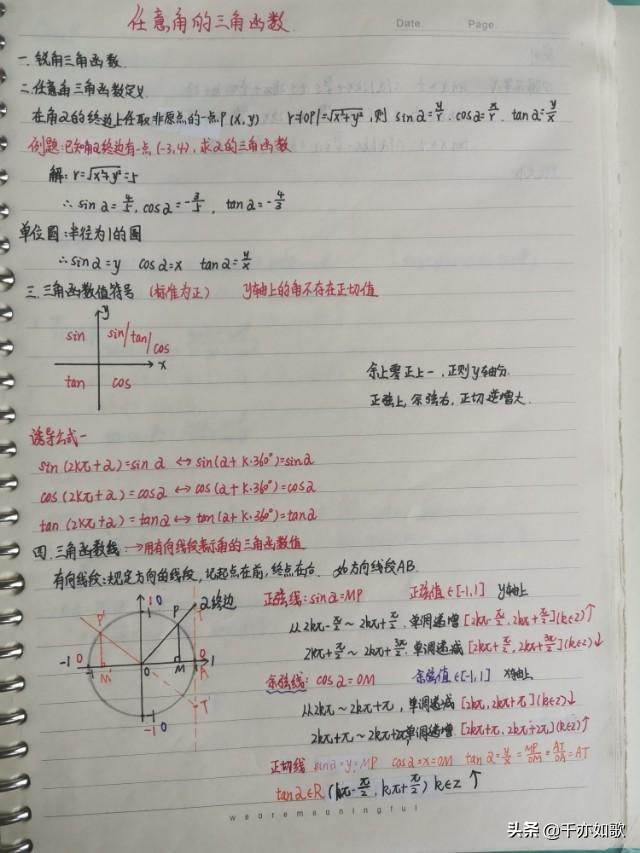 任意角的三角函数
Date. Page.
一.锐角三角函数.
二.任意角三角函数定义.
在角α的终边上任取非原点的一点P(x,y) r=|OP|=√x²+y²,则 sinα=y/r. cosα=x/r. tanα=y/x
例题:已知角α终边有一点(-3,4),求α的三角函数
解:r=√x²+y²=5
∴sinα=4/5,cosα=-3/5, tanα=-4/3
单位圆:半径为1的圆
∴sinα=y cosα=x tanα=y/x
三.三角函数值符号 (标准为正) y轴上的角不存在正切值
y
sin sin/tan/cos
x
tan cos
余上零正上一,正则y轴分.
正弦上,余弦右,正切逆增大.
诱导公式一
sin(2kπ+α)=sinα↔sin(α+k·360°)=sinα
cos(2kπ+α)=cosα↔cos(α+k·360°)=cosα
tan(2kπ+α)=tanα↔tan(α+k·360°)=tanα
四.三角函数线:→用有向线段表示角的三角函数值
有向线段:规定方向的线段,记起点在前,终点在右. 如方向线段AB.
1 0
P' P α终边 T
-1 0 -1 M' O M 0 1 A
T'
-1 -1 0
正弦线:sinα=MP 正弦值∈[-1,1] y轴上
从2kπ-π/2~2kπ+π/2.单调递增[2kπ-π/2,2kπ+π/2](k∈Z)↑
2kπ+π/2~2kπ+3π/2.单调递减[2kπ+π/2,2kπ+3π/2](k∈Z)↓
余弦线:cosα=OM 余弦值∈[-1,1] x轴上
从2kπ~2kπ+π,单调递减[2kπ,2kπ+π](k∈Z)↓
2kπ+π~2kπ+2π,单调递增[2kπ+π,2kπ+2π](k∈Z)↑
正切线 sinα=y=MP cosα=x=OM tanα=y/x=MP/OM=AT/OA=AT
tanα∈R(kπ-π/2,kπ+π/2)k∈Z↑
wearemeaningful
头条 @千亦如歌